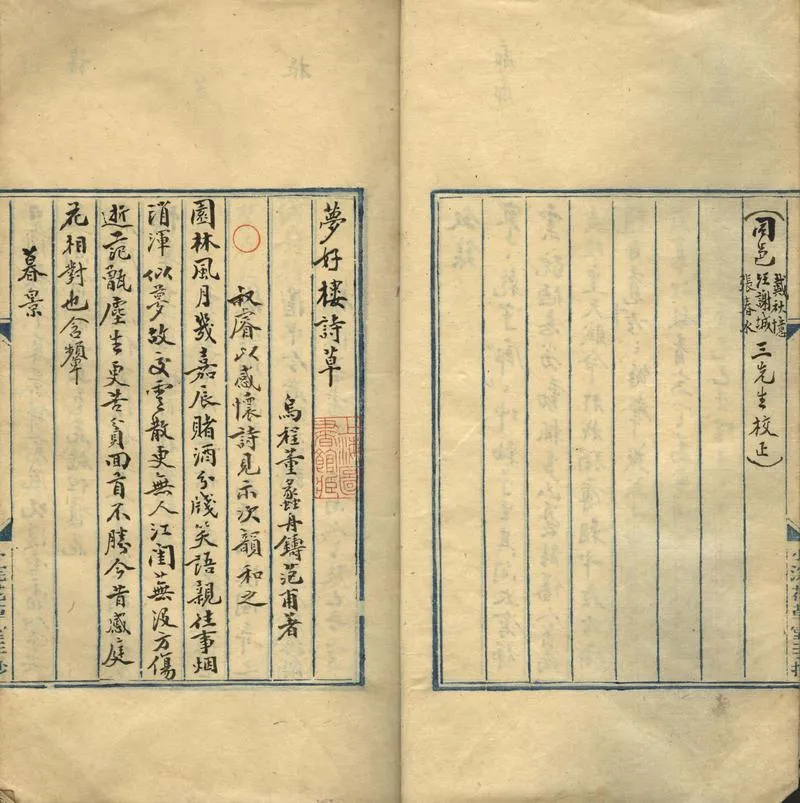 （同邑戴秋憶汪謝城張春水三先生校正）
夢好樓詩草
烏程董蠡舟鑄范甫著
上海圖書館藏
叔睿以感懷詩見示次韻和之
園林風月幾嘉辰賭酒分牋笑語親往事烟
消渾似夢故交雲散更無人江閨蕪沒方傷
逝范甑塵生更苦貧回首不勝今昔感庭
花相對也含顰
暮景